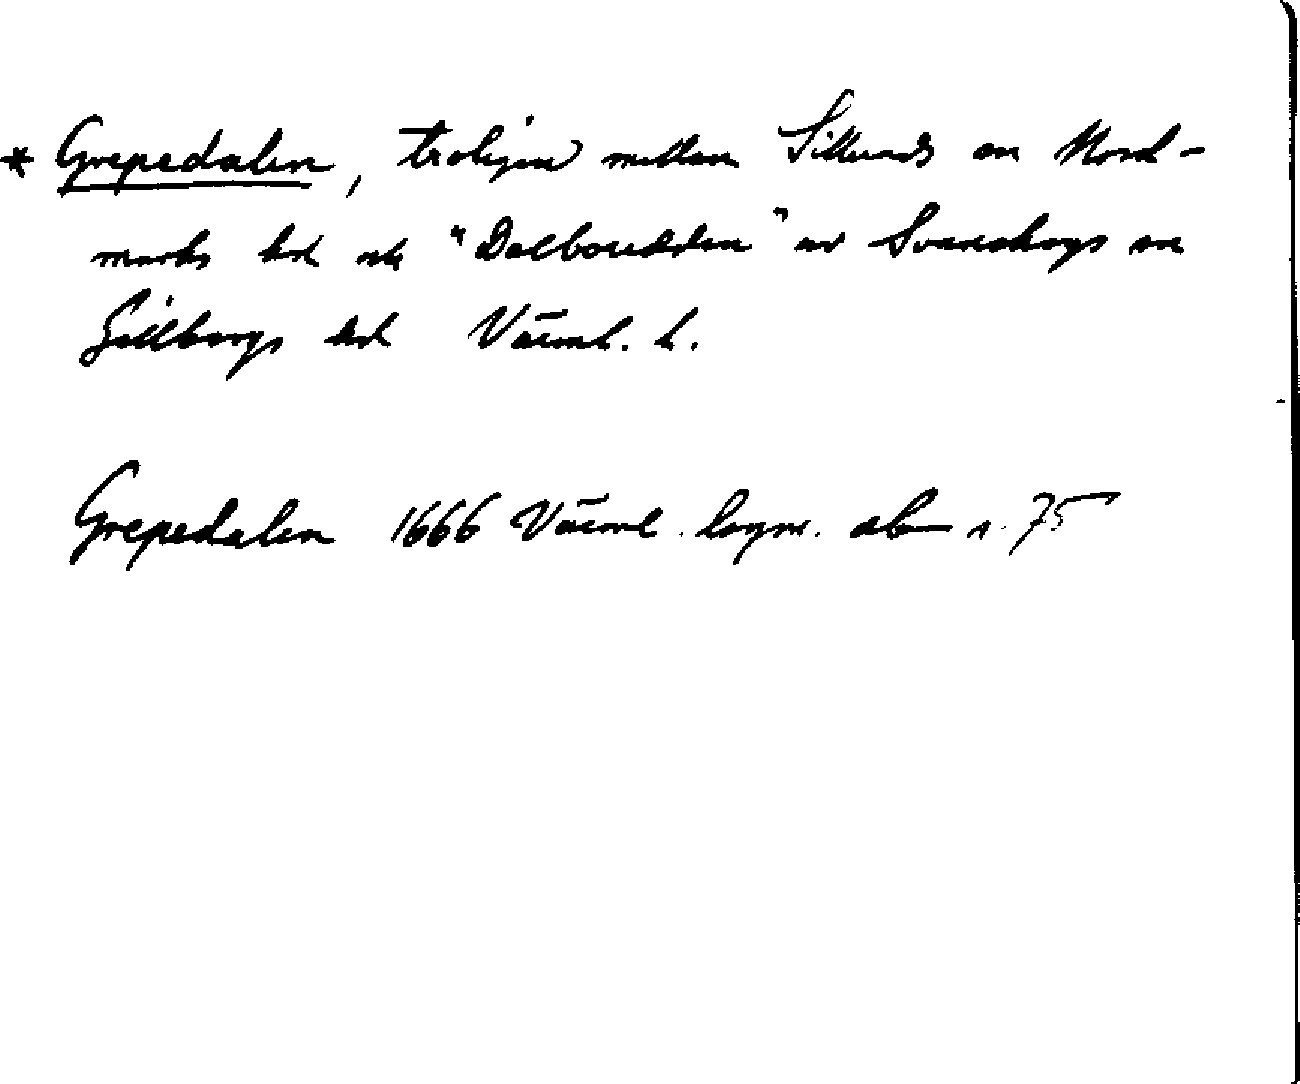 * Grepedalen, troligen mellan Silleruds o. Nord-
marks hd och "Dalboredden" av Svanskogs o.
Gillbergs hd Värml. l.
Grepedalen 1666 Värml. lagm. ab s. 75